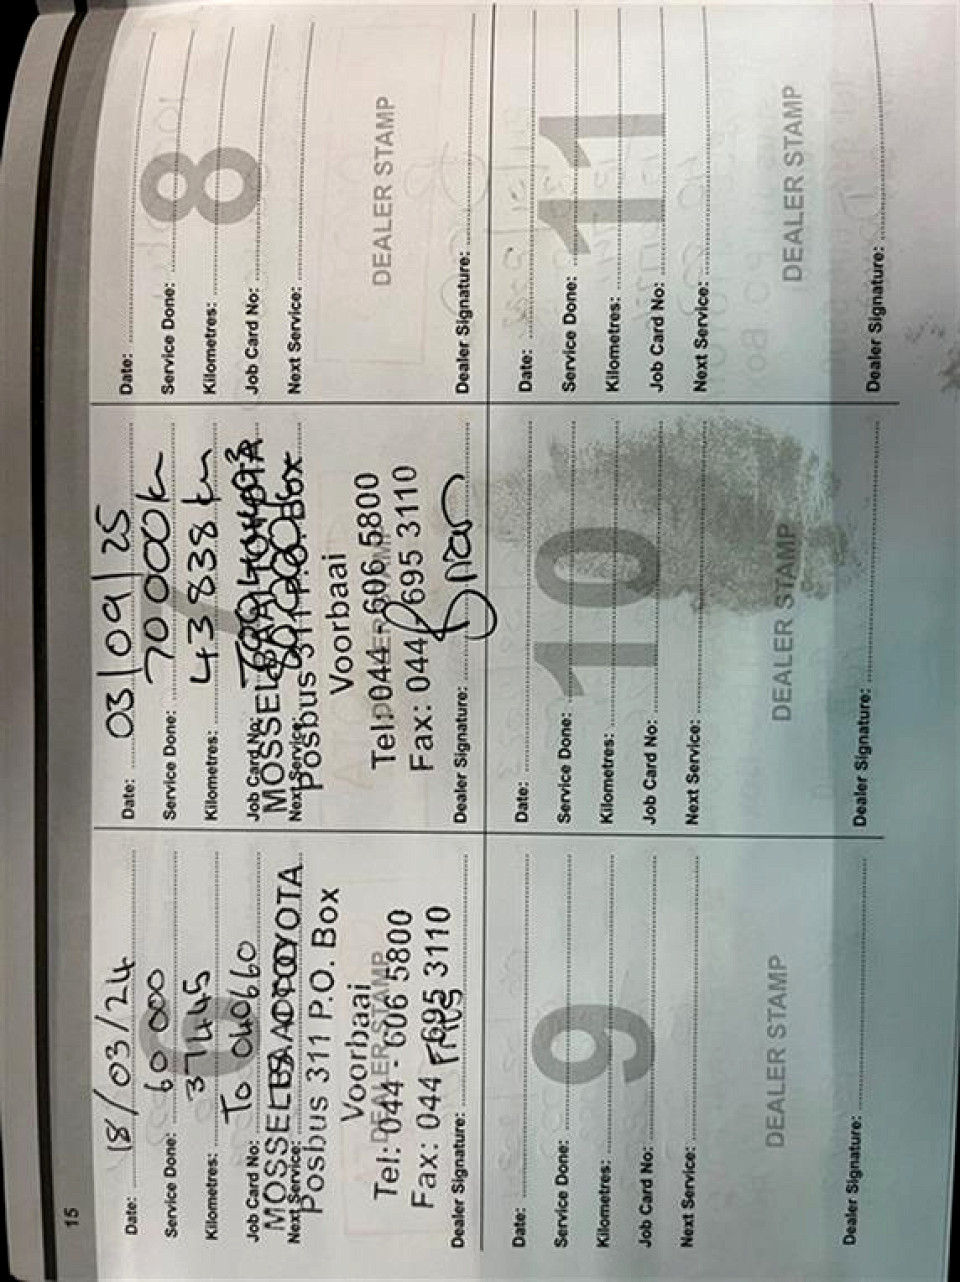 15
Date: 18/03/24
Service Done: 60 000
Kilometres: 37445
Job Card No: To 040660
MOSSELBAAI TOYOTA
Next Service:
Posbus 311 P.O. Box
Voorbaai
DEALER STAMP
Tel: 044 - 606 5800
Fax: 044 - 695 3110
Dealer Signature:
6
Date: 03/09/25
Service Done: 70 000 km
Kilometres: 43838 km
Job Card No:
MOSSELBAAI TOYOTA
Next Service:
Posbus 311 P.O. Box
Voorbaai
DEALER STAMP
Tel: 044 - 606 5800
Fax: 044 - 695 3110
Dealer Signature:
7
Date:
Service Done:
Kilometres:
Job Card No:
Next Service:
8
DEALER STAMP
Dealer Signature:
Date:
Service Done:
Kilometres:
Job Card No:
Next Service:
9
DEALER STAMP
Dealer Signature:
Date:
Service Done:
Kilometres:
Job Card No:
Next Service:
10
DEALER STAMP
Dealer Signature:
Date:
Service Done:
Kilometres:
Job Card No:
Next Service:
11
DEALER STAMP
Dealer Signature: